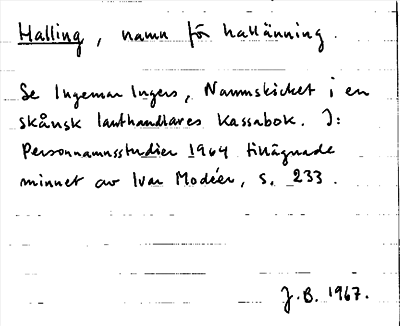 Halling, namn för hallänning.
Se Ingemar Ingers, Namnskicket i en
skånsk lanthandlares kassabok. I:
Personnamnsstudier 1964 tillägnade
minnet av Ivar Modéer, s. 233.
J.B. 1967.